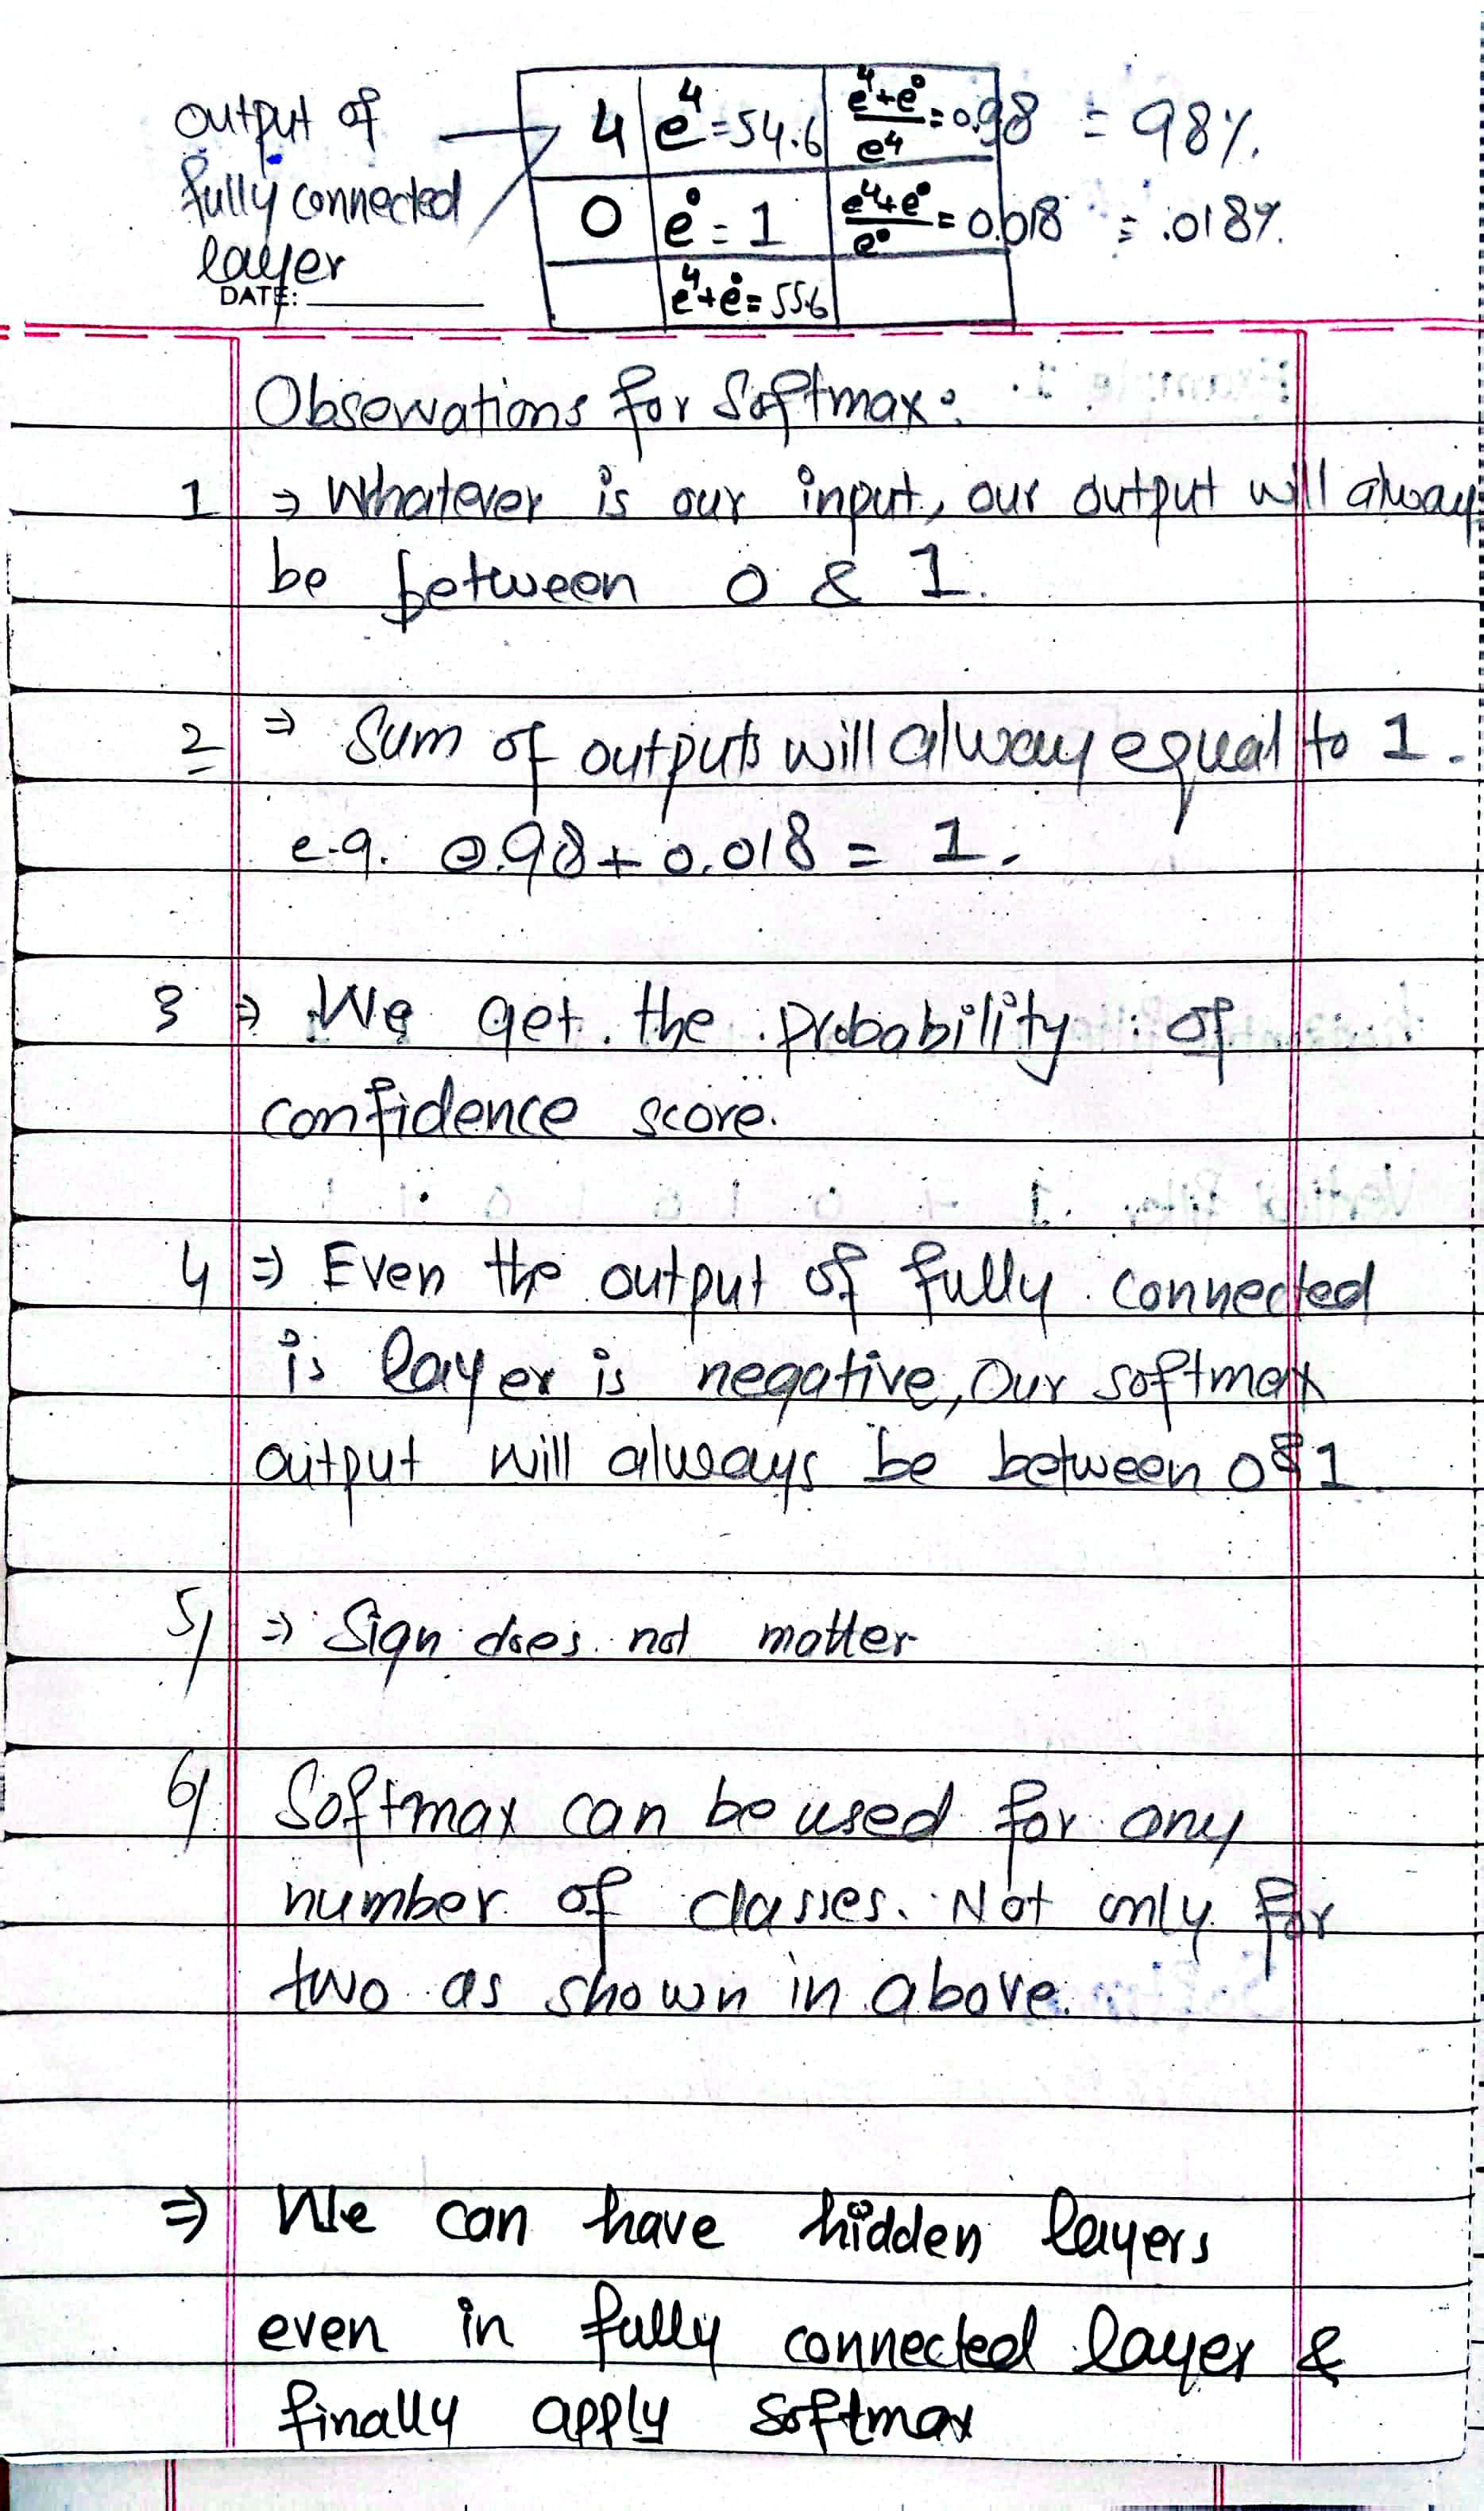 output of
fully connected
layer
DATE:
4 e⁴ = 54.6 e⁴+e⁰/e⁴ = 0.98 = 98%.
0 e⁰ = 1 e⁴+e⁰/e⁰ = 0.018 = .018%.
e⁴+e⁰ = 55.6
Observations for Softmax:
1 ⇒ Whatever is our input, our output will always
be between 0 & 1.
2 ⇒ Sum of outputs will alway equal to 1.
e.g. 0.98 + 0.018 = 1.
3 ⇒ We get the probability of
confidence score.
4 ⇒ Even the output of fully connected
is layer is negative, Our softmax
output will always be between 0 & 1.
5/ ⇒ Sign does not matter
6/ Softmax can be used for any
number of classes. Not only for
two as shown in above.
⇒ We can have hidden layers
even in fully connected layer &
finally apply softmax